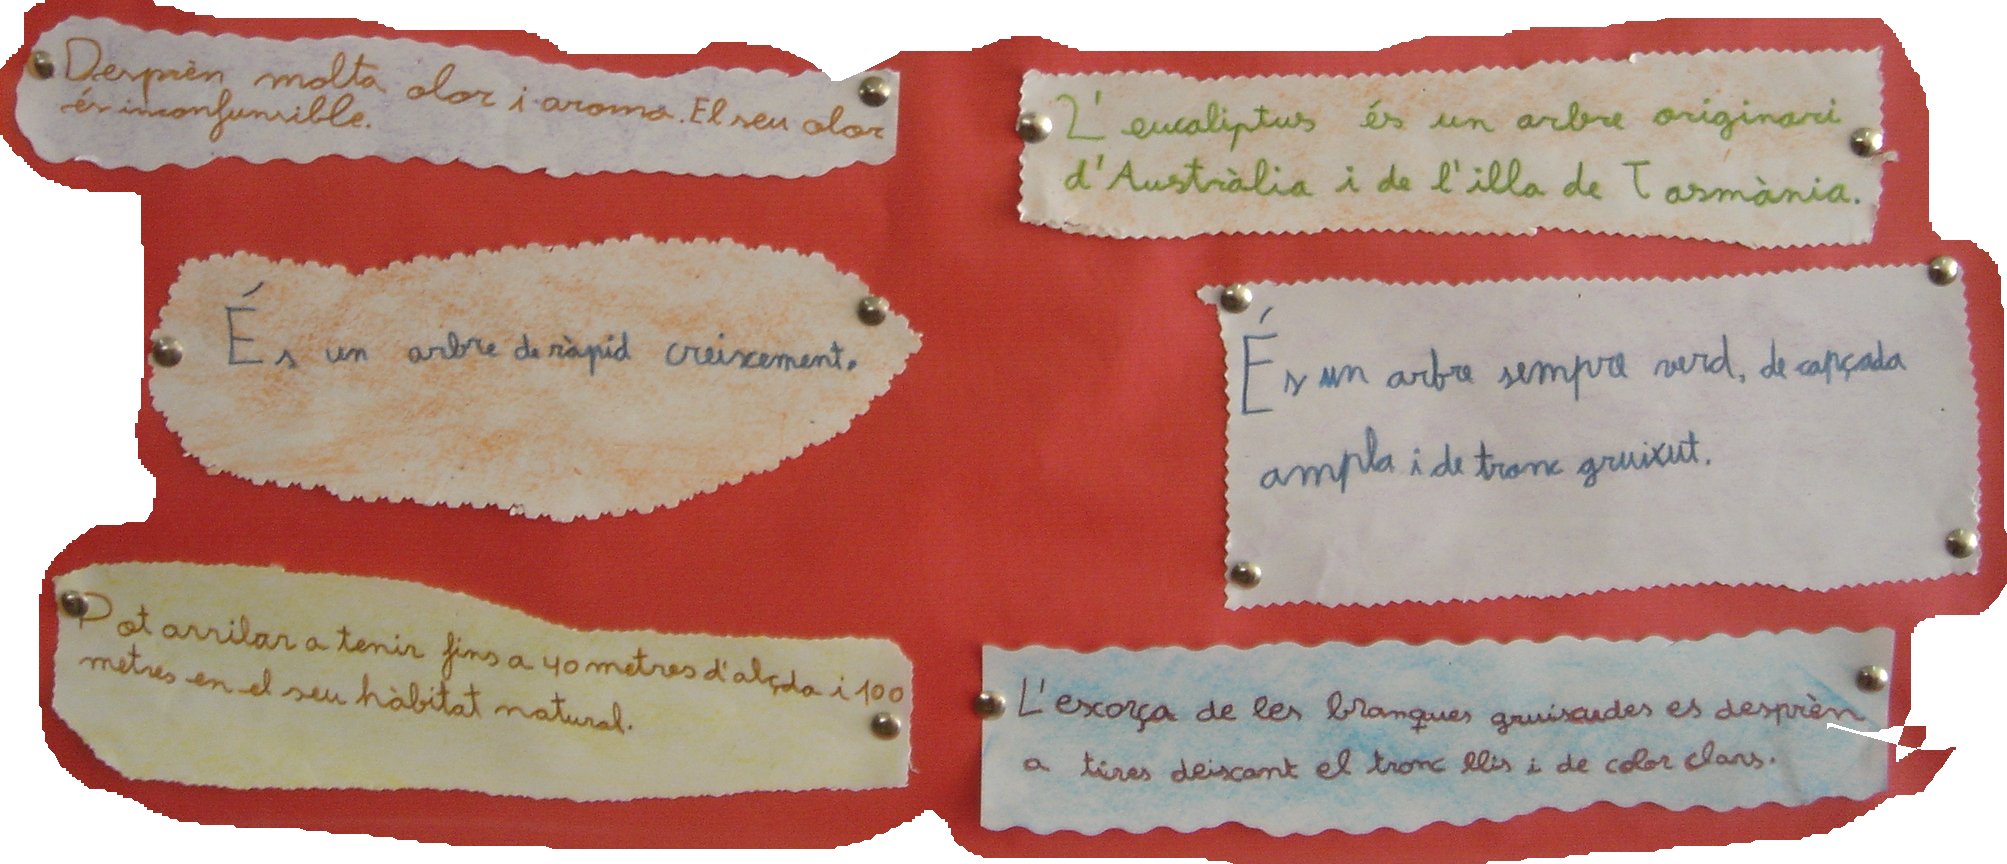 Desprèn molta olor i aroma. El seu olor
és inconfunsible.
L'eucaliptus és un arbre originari
d'Austràlia i de l'illa de Tasmània.
És un arbre de ràpid creixement.
És un arbre sempre verd, de capçada
ampla i de tronc gruixut.
Pot arrilar a tenir fins a 40 metres d'alçda i 100
metres en el seu hàbitat natural.
L'escorça de les branques gruixudes es desprèn
a tires deixant el tronc llis i de color clars.